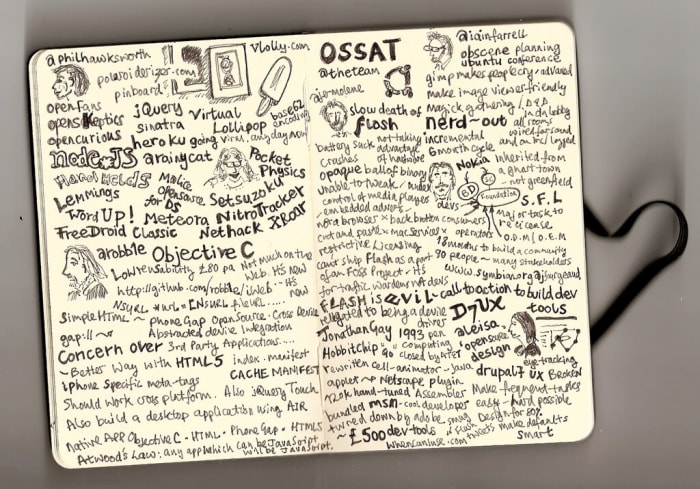 @philhawksworth
vlolly.com
polaroidesizer.com
pinboard
openfans
openskeptics
opencurious
jQuery
sinatra
heroku
Virtual
Lollipop
going viral, any day now
base62
node JS
arainycat
Pocket
Physics
Hand Helds
Malice
opensource
for DS
Setsuzoku
Lemmings
Word Up!
Meteora
NitroTracker
FreeDroid Classic
Nethack
Xrear
arobble
Objective C
Low reusability £80 pa Not much on the
Web. Its new
http://github.com/robble/iweb - its
now
NSURL * url = [NSURL fileurl .....
Simple HTML ~ phone Gap OpenSource - Cross Device
gap://~
Abstracted device Integration
Concern over 3rd Party Applications....
~ Better Way with HTML5 index.manifest
CACHE MANIFEST
iphone Specific meta-tags
Should work cross platform. Also jQuery Touch
Also build a desktop application using AIR
Native App Objective C - HTML - Phone Gap - HTML5
Atwood's Law: any app which can be JavaScript
will be JavaScript.
OSSAT
@theteam
slow death of
flash
battery suck
not taking
advantage
of hardware
crashes
opaque ball of binary
unable to tweak/
control of media players
embedded adverts
nerd browser * back button
cut and paste * mac services *
restrictive licensing
cant ship flash as a part
of an Foss Project - its
for traffic wardens not devs
FLASH is evil - call to action to build dev
tools
relegated to being a device
driver
Jonathan Gay 1993 pen
Hobbit chip "Go" Computing
closed by AT&T
rewritten cell-animator ~ java
applet ~ Netscape plugin
120k hand-tuned Assembler
bundled msn - cool developer
turned down by adobe
~ £500 dev-tools
whencaniuse.com
@iainfarrell
obscene planning
ubuntu conference
gimp makes people cry - advanced
make image viewer friendly
magick gathering / D&D
in da lobby
nerd-out
all rooms
wired for sound
and on irc/logged
incremental
6 month cycle
Nokia
inherited from
a ghost town
- not greenfield
ed
Foundation
devs
consumers
operators
S.F.L
Major task to
re-license
O.D.M / O.E.M
18 months to build a community
90 people ~ many stakeholders
www.symbian.org
D7UX
@leisa
opensource
design
eye-tracking
drupal7 UX Broken
Make frequent tasks
easy - hard possible
Design for 80%
make defaults
smart